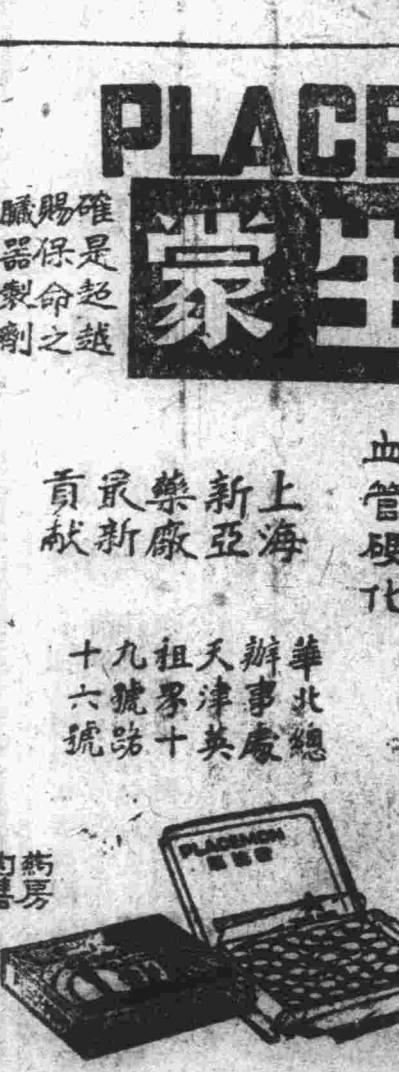 PLACE
生蒙
確是超越
賜保命之
臟器製劑
血管硬化
上海
新亞
藥廠
最新
貢献
華北總
辦事處
天津英
租界十
九號路
十六號
葯房
PLACEMON